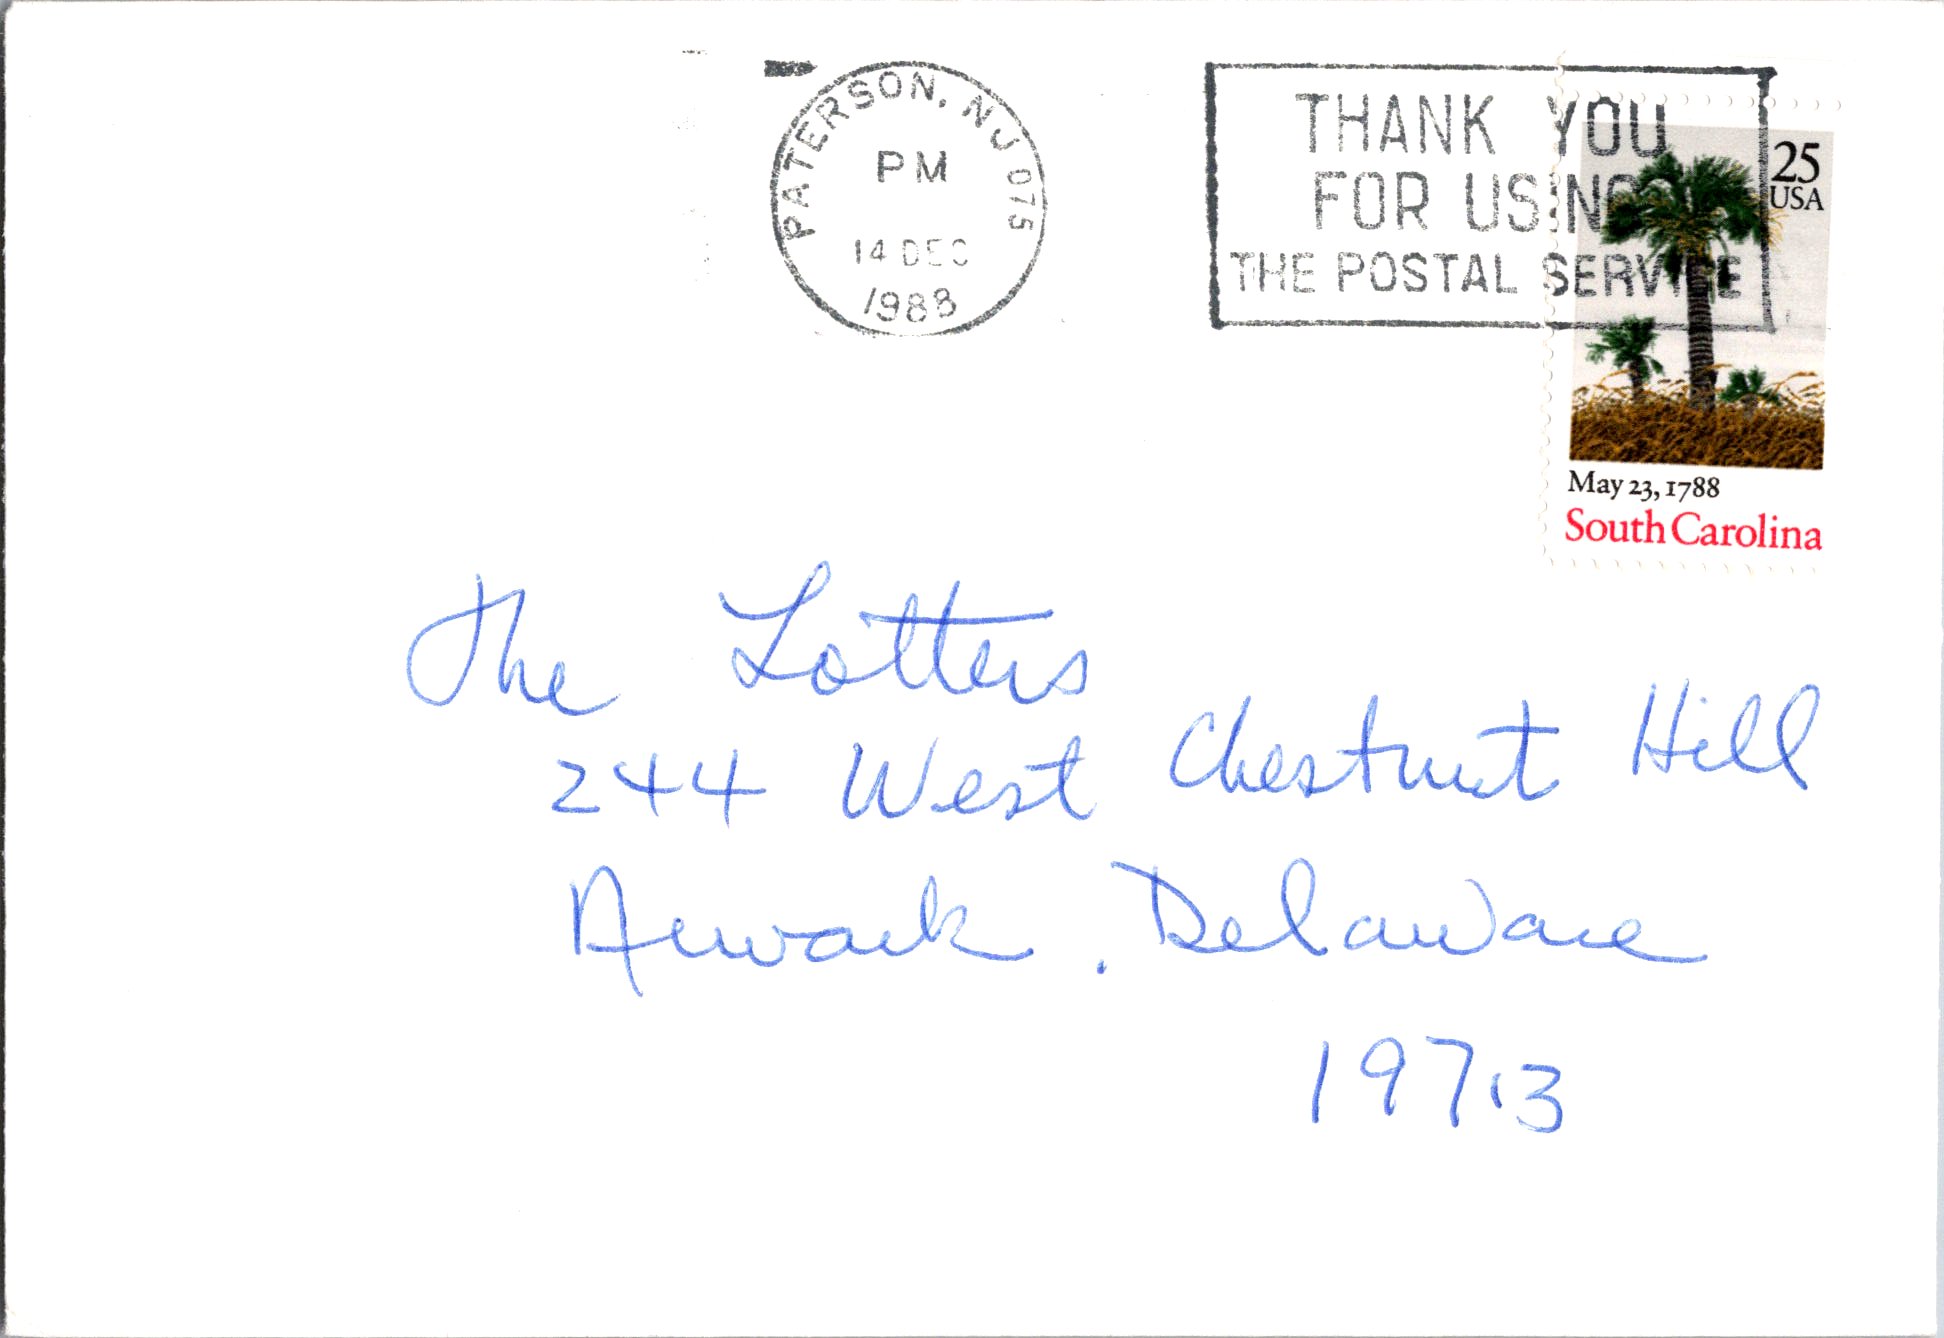 PATERSON, NJ 075
PM
14 DEC
1988
THANK YOU
FOR USING
THE POSTAL SERVICE
25
USA
May 23, 1788
South Carolina
The Lotters
244 West Chestnut Hill
Newark, Delaware
19713